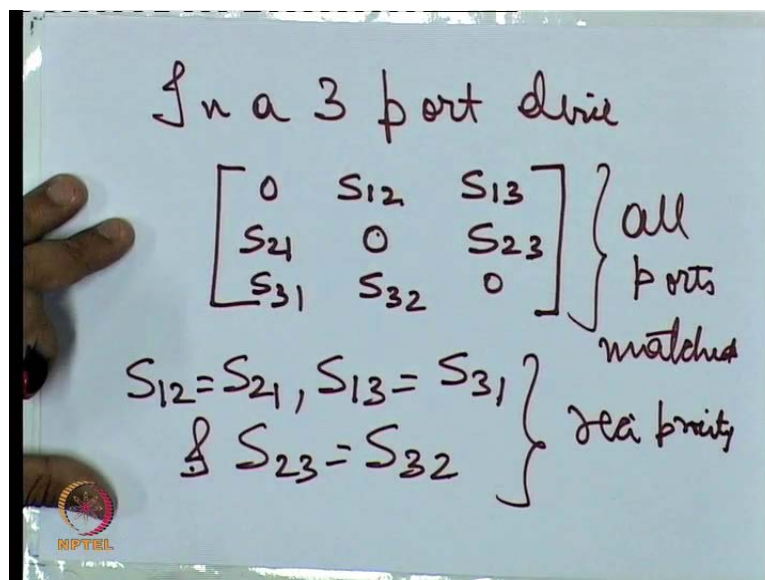 In a 3 port device
0 S12 S13
S21 0 S23
S31 S32 0
all ports matched
S12=S21, S13=S31
& S23=S32
reciprocity
NPTEL